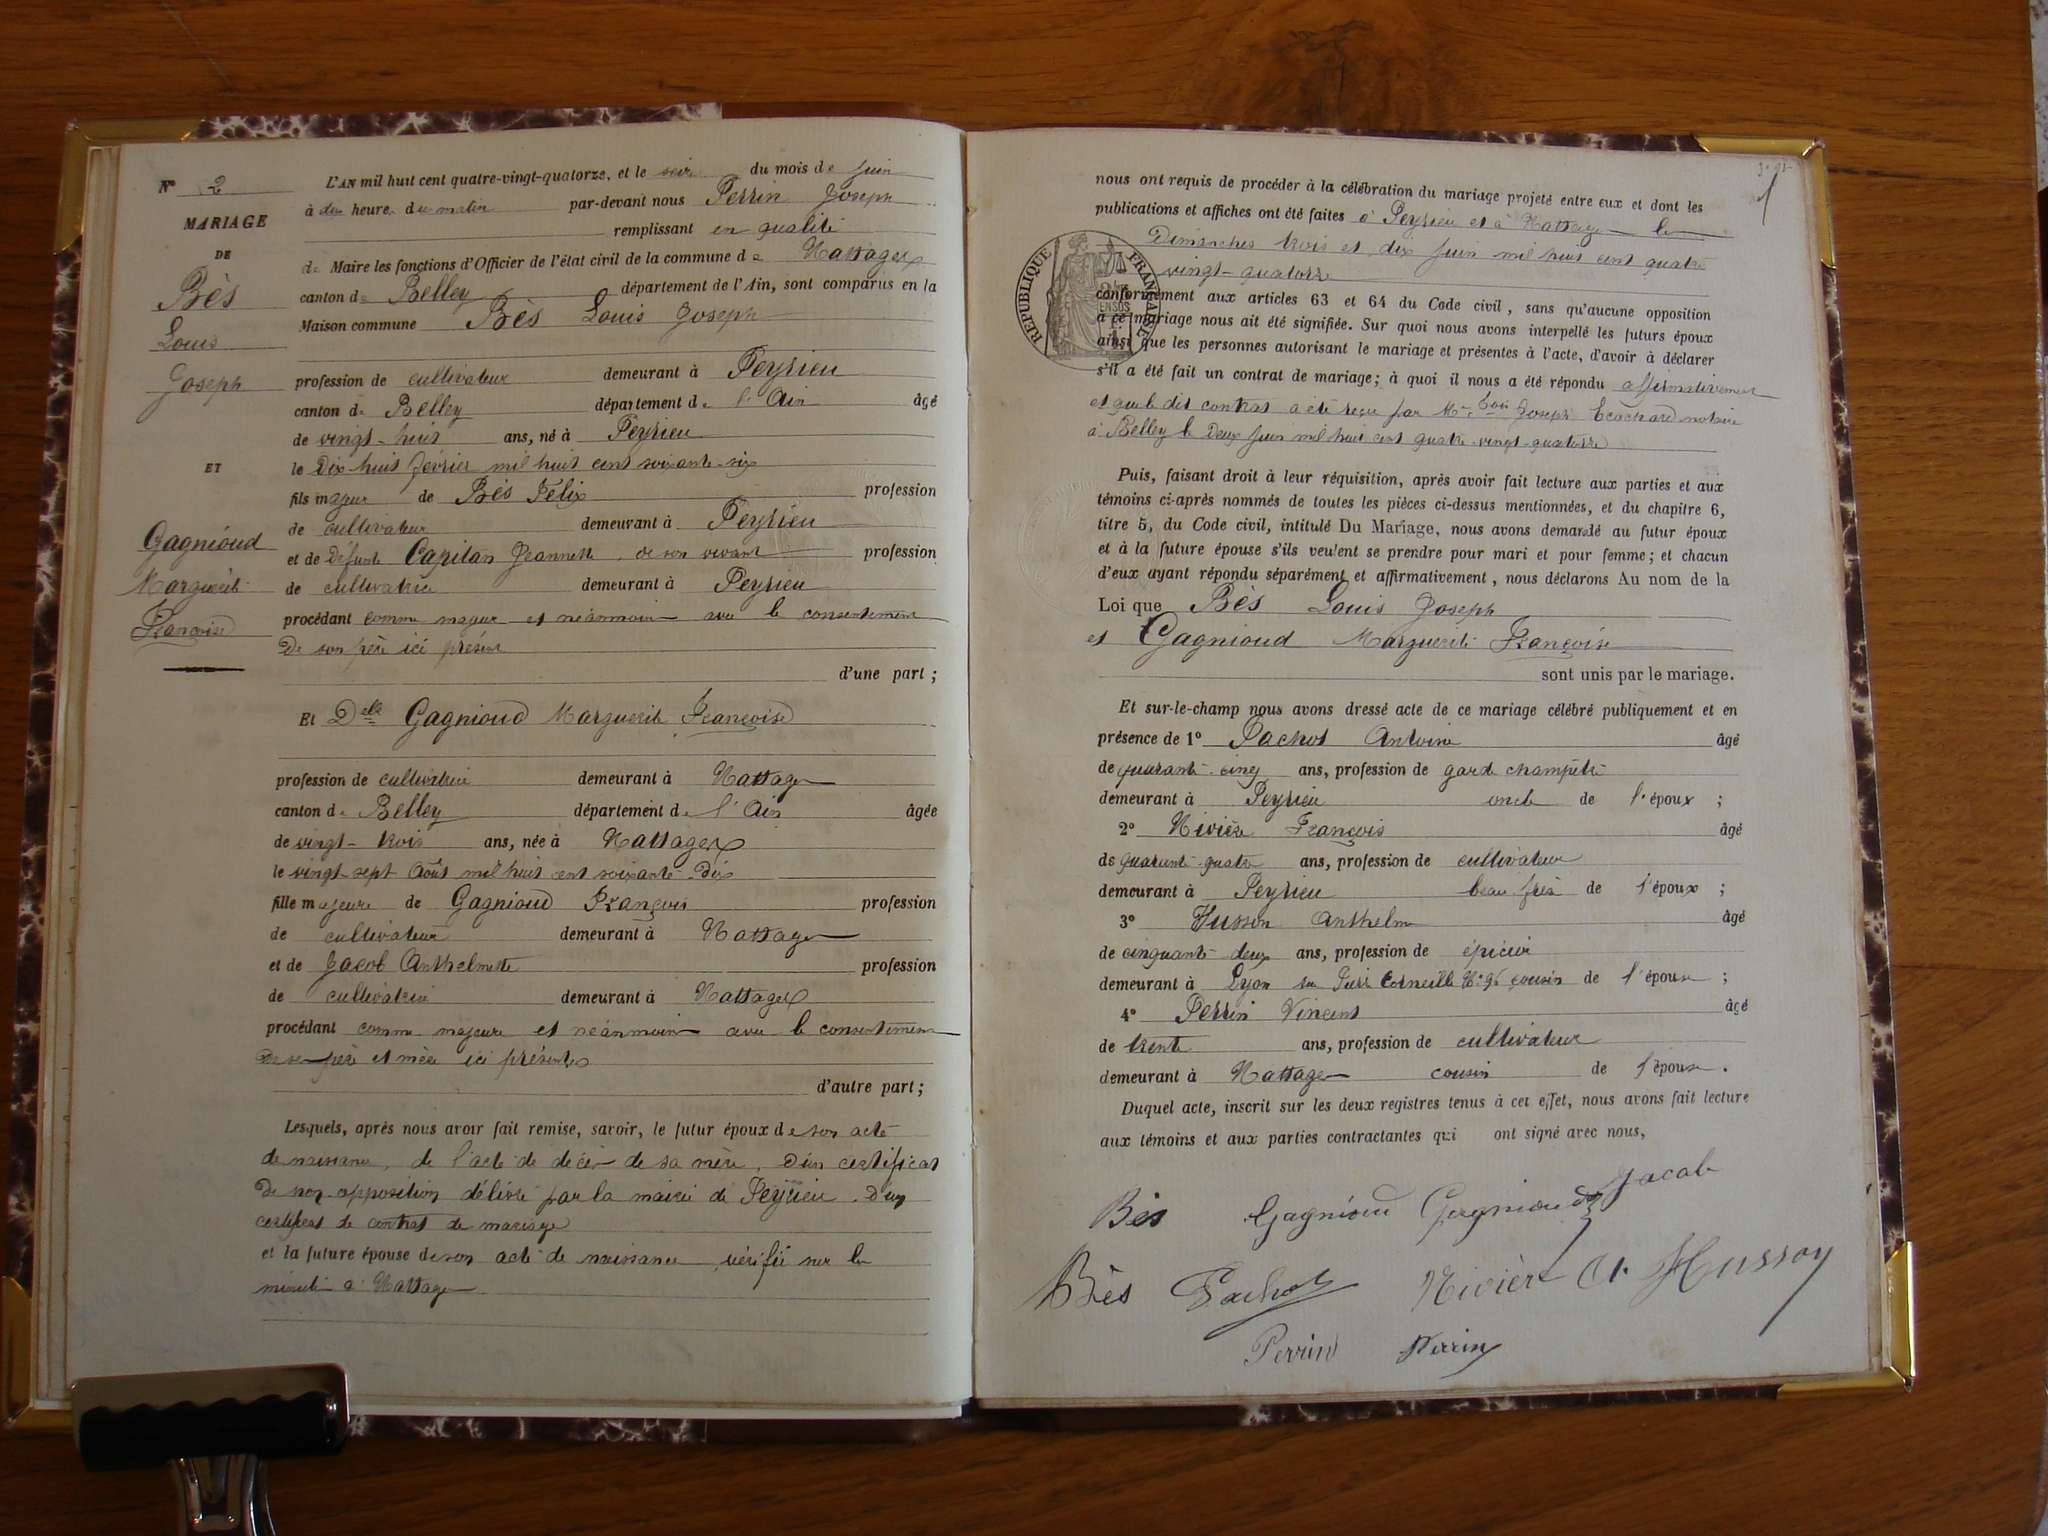 N° 2
MARIAGE
DE
Bès
Louis
Joseph
ET
Gagnioud
Marguerite
Françoise
L'AN mil huit cent quatre-vingt-quatorze, et le du mois de Juin
à dix heures du matin par-devant nous Perrin Joseph
remplissant en qualité
de Maire les fonctions d'Officier de l'état civil de la commune de Nattages
canton de Belley département de l'Ain, sont comparus en la
Maison commune Bès Louis Joseph
profession de cultivateur demeurant à Peyrieu
canton de Belley département de l'Ain âgé
de vingt-huit ans, né à Peyrieu
le Dix-huit février mil huit cent soixante-six
fils majeur de Bès Félix profession
de cultivateur demeurant à Peyrieu
et de Défunte Capitan Jeannette, de son vivant profession
de cultivatrice demeurant à Peyrieu
procédant comme majeur et néanmoins avec le consentement
De son père ici présent
d'une part ;
Et Delle Gagnioud Marguerite Françoise
profession de cultivatrice demeurant à Nattages
canton de Belley département de l'Ain âgée
de vingt-trois ans, née à Nattages
le vingt-sept Août mil huit cent soixante-dix
fille majeure de Gagnioud François profession
de cultivateur demeurant à Nattages
et de Jacob Anthelmette profession
de cultivatrice demeurant à Nattages
procédant comme majeure et néanmoins avec le consentement
De ses père et mère ici présents
d'autre part ;
Lesquels, après nous avoir fait remise, savoir, le futur époux de son acte
de naissance, de l'acte de décès de sa mère, D'un certificat
De non opposition délivré par la mairie de Peyrieu. D'un
certificat de contrat de mariage
et la future épouse de son acte de naissance vérifié sur la
minute à Nattages
nous ont requis de procéder à la célébration du mariage projeté entre eux et dont les
publications et affiches ont été faites à Peyrieu et à Nattages les
Dimanches trois et dix Juin mil huit cent quatre
vingt-quatorze
RÉPUBLIQUE FRANÇAISE
conformément aux articles 63 et 64 du Code civil, sans qu'aucune opposition
à ce mariage nous ait été signifiée. Sur quoi nous avons interpellé les futurs époux
ainsi que les personnes autorisant le mariage et présentes à l'acte, d'avoir à déclarer
s'il a été fait un contrat de mariage; à quoi il nous a été répondu affirmativement
et que le dit contrat a été reçu par Me Louis Joseph Ecochard notaire
à Belley le Deux Juin mil huit cent quatre-vingt-quatorze
Puis, faisant droit à leur réquisition, après avoir fait lecture aux parties et aux
témoins ci-après nommés de toutes les pièces ci-dessus mentionnées, et du chapitre 6,
titre 5, du Code civil, intitulé Du Mariage, nous avons demandé au futur époux
et à la future épouse s'ils veulent se prendre pour mari et pour femme; et chacun
d'eux ayant répondu séparément et affirmativement, nous déclarons Au nom de la
Loi que Bès Louis Joseph
et Gagnioud Marguerite Françoise
sont unis par le mariage.
Et sur-le-champ nous avons dressé acte de ce mariage célébré publiquement et en
présence de 1° Pachot Antoine âgé
de quarante-cinq ans, profession de garde champêtre
demeurant à Peyrieu oncle de l'époux ;
2° Nivière François âgé
de quarante-quatre ans, profession de cultivateur
demeurant à Peyrieu beau frère de l'époux ;
3° Husson Anthelme âgé
de cinquante-deux ans, profession de épicier
demeurant à Lyon rue Pierre Corneille N° 95 cousin de l'épouse ;
4° Perrin Vincent âgé
de trente ans, profession de cultivateur
demeurant à Nattages cousin de l'épouse.
Duquel acte, inscrit sur les deux registres tenus à cet effet, nous avons fait lecture
aux témoins et aux parties contractantes qui ont signé avec nous,
Bès Gagnioud Gagnioud Jacob
Bès Pachot Nivière A. Husson
Perrin Perrin